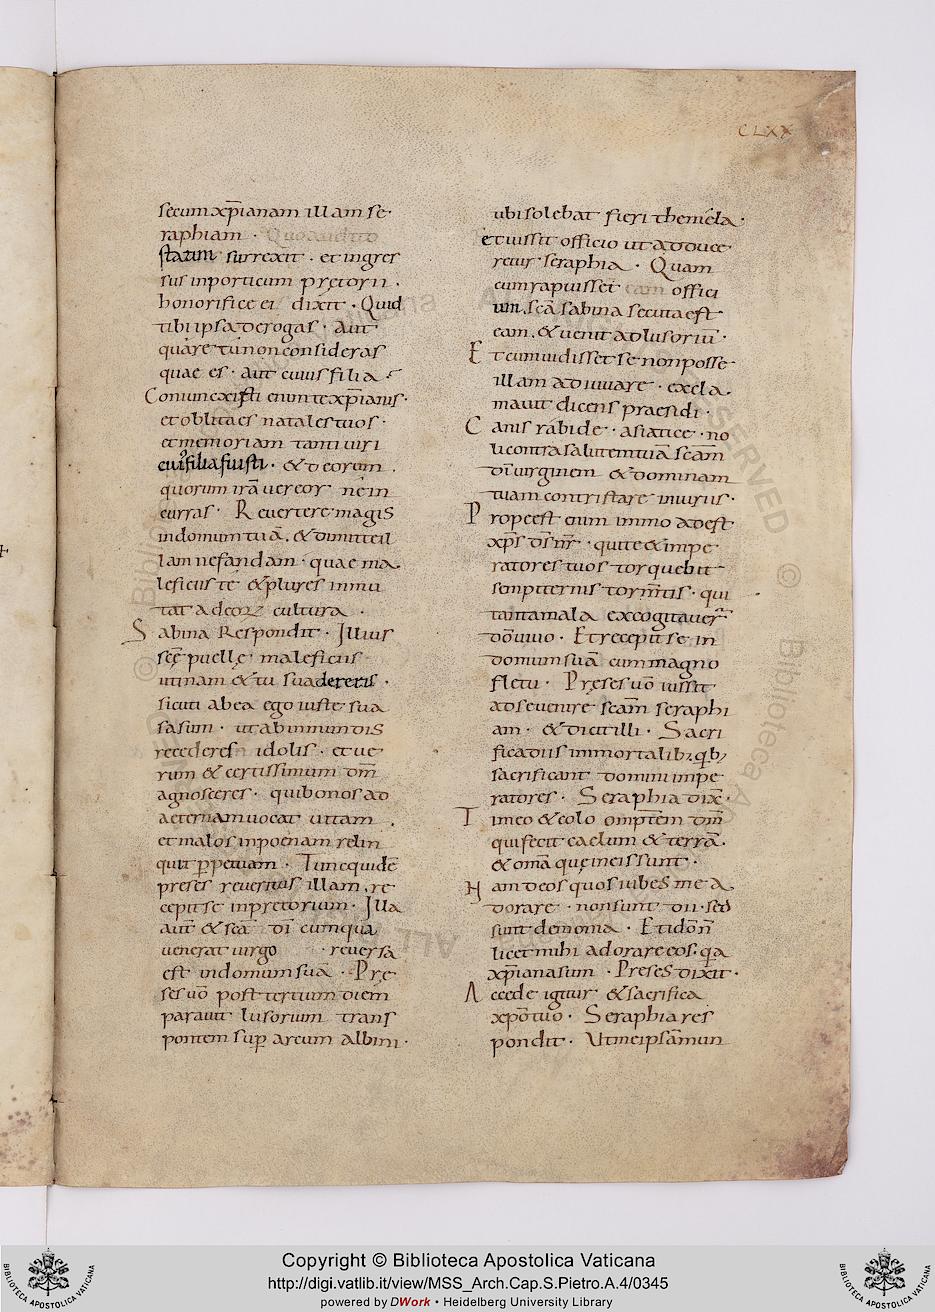 CLXX
secum xp̄ianam illam se
raphiam · Quo audito
statim surrexit · et ingres
sus in porticum pretorii ·
honorifice ei dixit · Quid
tibi ipsa derogas · aut
quare tu non consideras
quae es · aut cuius filia
Coniunxisti enim te xp̄ianis ·
et oblita es natales tuos ·
et memoriam tanti uiri
cui᾽ filia fuisti · & deorum ·
quorum irā uereor ne in
curras · Reuertere magis
in domum tuā · & dimitte il
lam nefandam · quae ma
leficiis te & plures inmu
tat a deoꝝ cultura ·
Sabina Respondit · Illius
scę puellę maleficiis
utinam & tu suadereris ·
sicuti ab ea ego iuste sua
sa sum · ut ab inmundis
recederes idolis · et ue
rum & certissimum dm̄
agnosceres · qui bonos ad
aeternam uocat uitam ·
et malos in poenam relin
quit ꝑpetuam · Tunc quidē
preses reueritus illam · re
cepit se in pretorium · Illa
aut̄ & sca dī cum qua
uenerat uirgo · reuersa
est in domum suā · Pre
ses uō post tertium diem
parauit lusorium trans
pontem suꝑ arcum albini ·
ubi solebat fieri themela ·
et iussit officio ut adduce
retur seraphia · Quam
cum rapuisset eam offici
um · scā sabina secuta est
eam · & uenit ad lusoriū ·
Et cum uidisset se non posse
illam adiuuare · excla
mauit dicens praesidi ·
Canis rabide · asiatice · no
li contra salutem tuam scam̄
dī uirginem & dominam
tuam contristare iniuriis ·
Prope est enim immo adest
xp̄s dn̄s nr̄ · qui te & impe
ratores tuos torquebit
sempiternis torm̄tis · qui
tanta mala excogitauer̄
dō uiuo · Et recepit se in
domum suā cum magno
fletu · Preses uō iussit
ad se uenire scam̄ seraphi
am · & dicit illi · Sacri
fica diis immortalib; qb;
sacrificant domini impe
ratores · Seraphia dix̄ ·
Timeo & colo omp̄tem dm̄
qui fecit caelum & terrā ·
& om̄a que in eis sunt ·
Nam deos quos iubes me a
dorare · non sunt dii · sed
sunt demonia · Et ido n̄
licet mihi adorare eos · qa
xp̄iana sum · Preses dixit ·
Accede igitur & sacrifica
xpō tuo · Seraphia res
pondit · Ut me ipsam mun
Copyright © Biblioteca Apostolica Vaticana
http://digi.vatlib.it/view/MSS_Arch.Cap.S.Pietro.A.4/0345
powered by DWork • Heidelberg University Library